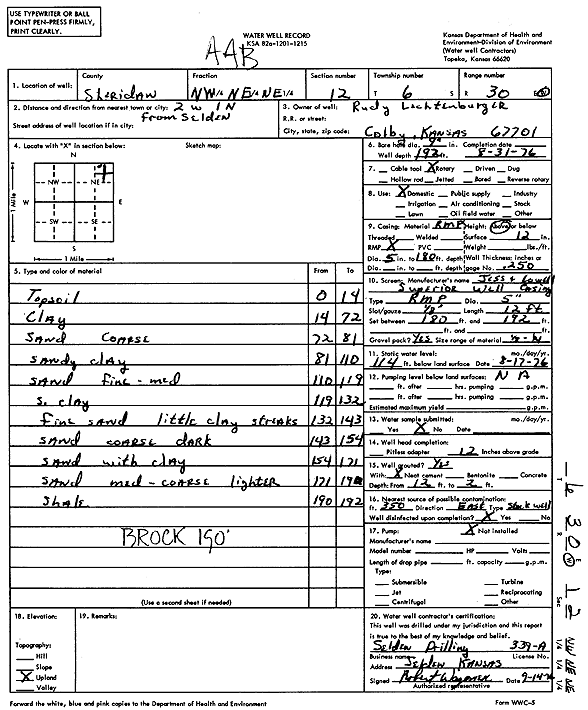 USE TYPEWRITER OR BALL
POINT PEN-PRESS FIRMLY,
PRINT CLEARLY.
AAB
WATER WELL RECORD
KSA 82a-1201-1215
Kansas Department of Health and
Environment-Division of Environment
(Water well Contractors)
Topeka, Kansas 66620
1. Location of well: County Sheridan Fraction NW 1/4 NE 1/4 NE 1/4 Section number 12 Township number T 6 S Range number R 30 E/W
2. Distance and direction from nearest town or city: 2 W 1 N
from Selden
Street address of well location if in city:
3. Owner of well: Rudy Lichtenburger
R.R. or street:
City, state, zip code: Colby, Kansas 67701
4. Locate with "X" in section below: Sketch map:
N
NW NE
W E
SW SE
S
1 Mile
1 Mile
6. Bore hole dia. 9" in. Completion date
Well depth 192 ft. 8-31-76
7. Cable tool X Rotary Driven Dug
Hollow rod Jetted Bored Reverse rotary
8. Use: X Domestic Public supply Industry
Irrigation Air conditioning Stock
Lawn Oil field water Other
9. Casing: Material RMP Height: Above or below
Threaded Welded Surface 12 in.
RMP X PVC Weight lbs./ft.
Dia. 5 in. to 180 ft. depth Wall Thickness: inches or
Dia. in. to ft. depth gage No. .250
5. Type and color of material From To
Topsoil 0 14
Clay 14 72
Sand Coarse 72 81
Sandy clay 81 110
Sand fine-med 110 119
S. clay 119 132
Fine sand little clay streaks 132 143
Sand coarse dark 143 154
Sand with clay 154 171
Sand med-coarse lighter 171 190
Shale 190 192
BROCK 190'
(Use a second sheet if needed)
10. Screen: Manufacturer's name Jess &
Superior Well Casing
Type RMP Dia. 5"
Slot/gauze 1/8" Length 12 ft
Set between 180 ft. and 192 ft.
ft. and ft.
Gravel pack? Yes Size range of material
11. Static water level: mo./day/yr.
114 ft. below land surface Date 8-17-76
12. Pumping level below land surfaces: N A
ft. after hrs. pumping g.p.m.
ft. after hrs. pumping g.p.m.
Estimated maximum yield g.p.m.
13. Water sample submitted: mo./day/yr.
Yes X No Date
14. Well head completion:
Pitless adapter 12 Inches above grade
15. Well grouted? Yes
With: X Neat cement Bentonite Concrete
Depth: From 12 ft. to 2 ft.
16. Nearest source of possible contamination:
ft. 350 Direction East Type Stock well
Well disinfected upon completion? X Yes No
17. Pump: X Not installed
Manufacturer's name
Model number HP Volts
Length of drop pipe ft. capacity g.p.m.
Type:
Submersible Turbine
Jet Reciprocating
Centrifugal Other
18. Elevation:
Topography:
Hill
Slope
X Upland
Valley
19. Remarks:
20. Water well contractor's certification:
This well was drilled under my jurisdiction and this report
is true to the best of my knowledge and belief.
Selden Drilling 339-A
Business name License No.
Address Selden Kansas
Signed Robert Wagoner Date 9-14-76
Authorized representative
T 6 R 30 E W Sec 12 1/4 1/4 1/4 NW NE NE
Forward the white, blue and pink copies to the Department of Health and Environment
Form WWC-5